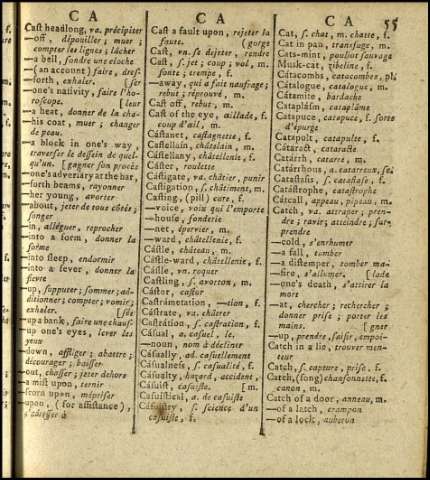 C A
Cast headlong, va. précipiter
—off, dépouiller; muer;
compter les lignes; lâcher
—a bell, fondre une cloche
—(an account) faire, dres-
—forth, exhaler. [ser
—one's nativity, faire l'ho-
roscope. [leur
—a heat, donner de la cha-
—his coat, muer; changer
de peau.
—a block in one's way,
traverser le dessein de quel-
qu'un. [gagner son procès
—one's adversary at the bar,
—forth beams, rayonner
—her young, avorter
—about, jeter de tous côtés;
songer
—in, alléguer, reprocher
—into a form, donner la
forme
—into sleep, endormir
—into a fever, donner la
fievre
—up, supputer; sommer; ad-
ditionner; compter; vomir;
exhaler. [sée
—up a bank, faire une chaus-
—up one's eyes, lever les
yeux
—down, affliger; abattre;
décourager; baisser
—out, chasser; jeter dehors
—a mist upon, ternir
—frown upon, mépriser
—upon, (for assistance),
s'adresser à
C A
Cast a fault upon, rejeter la
faute. (gorge
Cast, vn. se déjeter, rendre
Cast, s. jet; coup; vol, m.
fonte; trempe, f.
—away, qui a fait naufrage;
rebut; réprouvé, m.
Cast off, rebut, m.
Cast of the eye, œillade, f.
coup d'œil, m.
Cástanet, castagnette, f.
Castellain, châtelain, m.
Castellany, châtellenie, f.
Cáster, roulette
Cástigate, va. châtier, punir
Castigation, s. châtiment, m.
Casting, (pill) cure, f.
—voice, voix qui l'emporte
—house, fonderie
—net, épervier, m.
—ward, châtellenie, f.
Cástle, château, m.
Cástle-ward, châtellenie, f.
Cástle, vn. roquer
Cástling, s. avorton, m.
Cástor, castor
Castrametátion, —tion, f.
Cástrate, va. châtrer
Castrátion, s. castration, f.
Cásual, a. casuel, le.
—noun, nom à décliner
Cásually, ad. casuellement
Cásualness, s. casualité, f.
Cásualty, hazard, accident,
Cásuist, casuiste. [m.
Casuistical, a. de casuiste
Cásuistry, s. science d'un
casuiste, f.
C A
55
Cat, s. chat, m. chatte, f.
Cat in pan, transfuge, m.
Cats-mint, pouliot sauvage
Musk-cat, zibeline, f.
Cátacombs, catacombes, pl.
Cátalogue, catalogue, m.
Cátamite, bardache
Cátaplasm, cataplâme
Catapuce, catapuce, f. sorte
d'épurge
Catapult, catapulte, f.
Cátaract, cataracte
Catárrh, catarre, m.
Catárrhous, a. catarreux, se.
Catastasis, s. catastase, f.
Catástrophe, catastrophe
Cátcall, appeau, pipeau, m.
Catch, va. attraper; pren-
dre; ravir; atteindre; sur-
prendre
—cold, s'enrhumer
—a fall, tomber
—a distemper, tomber ma-
—fire, s'allumer. (lade
—one's death, s'attirer la
mort
—at, chercher; rechercher;
donner prise; porter les
mains. [gner
—up, prendre, saisir, empoi-
Catch in a lie, trouver men-
teur
Catch, s. capture, prise, f.
Catch, (song) chansonnette, f.
canon, m.
Catch of a door, anneau, m.
—of a latch, crampon
—of a lock, auberon